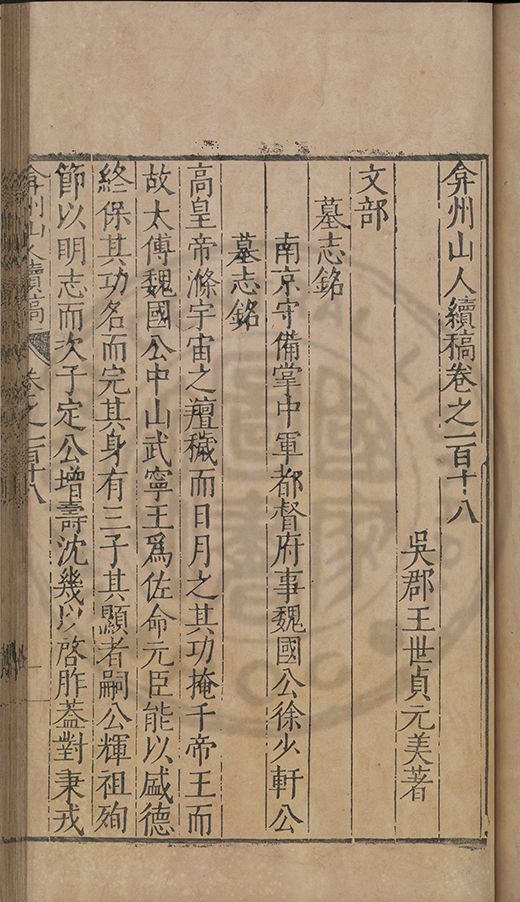 弇州山人續稿卷之一百十八
吳郡王世貞元美著
文部
墓志銘
南京守備掌中軍都督府事魏國公徐少軒公
墓志銘
高皇帝滌宇宙之羶穢而日月之其功掩千帝王而
故太傅魏國公中山武寧王爲佐命元臣能以盛德
終保其功名而完其身有三子其顯者嗣公輝祖殉
節以明志而次子定公增壽沈幾以啓胙葢對秉戎
弇州山人續稿 卷之一百十八